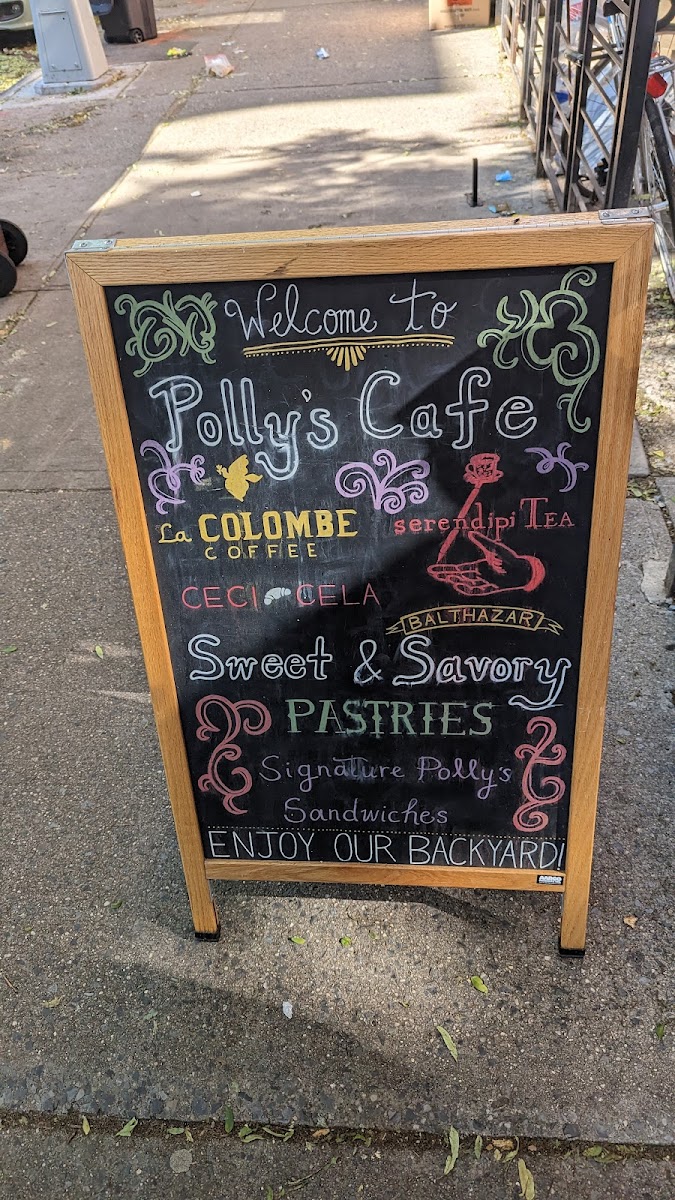 Welcome to
Polly's Cafe
La COLOMBE
COFFEE
serendipiTEA
CECI CELA
BALTHAZAR
Sweet & Savory
PASTRIES
Signature Polly's
Sandwiches
ENJOY OUR BACKYARD!